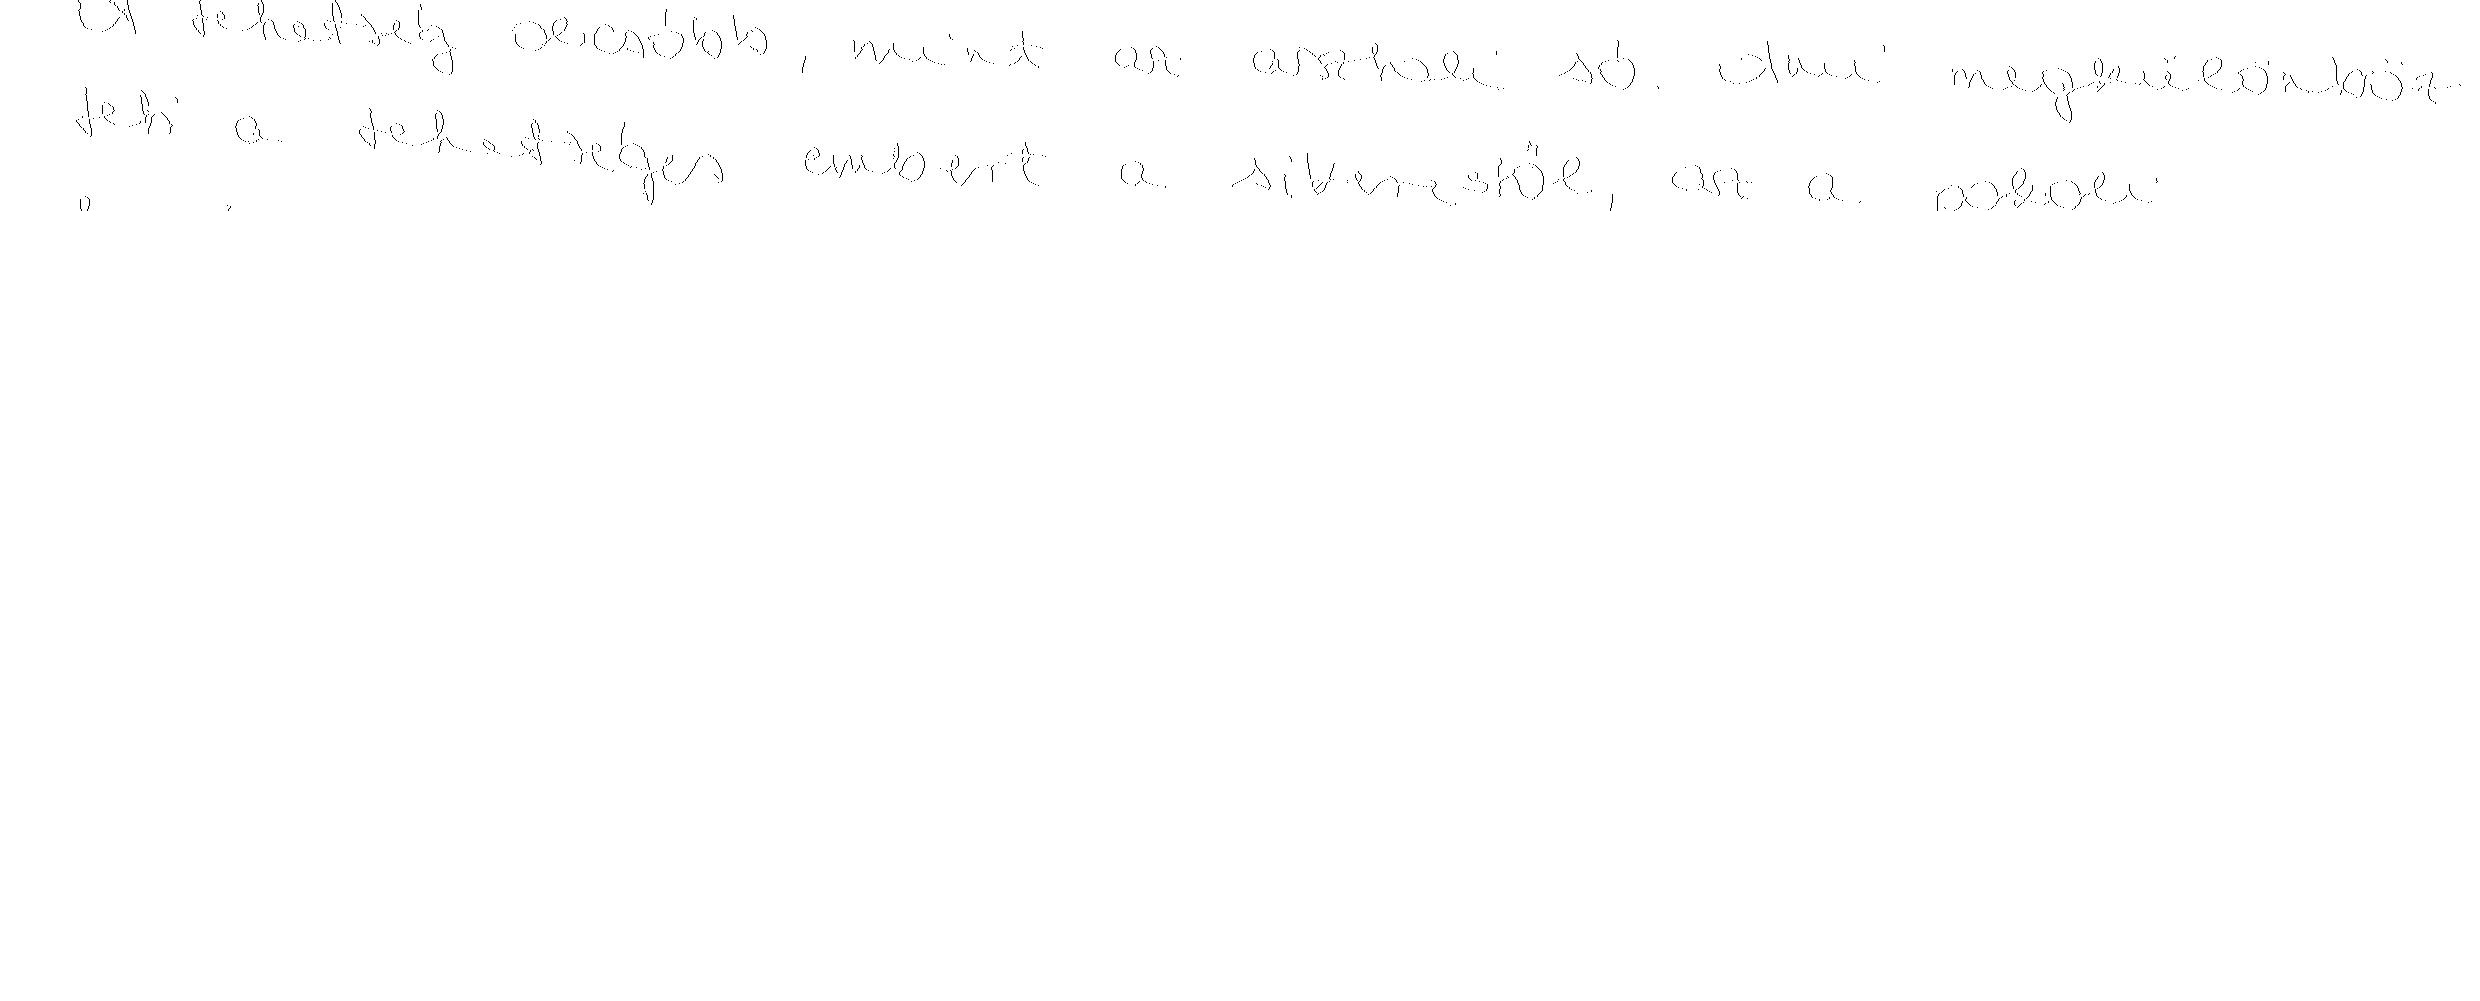 A tehetség olcsóbb, mint az asztali só. Ami megkülönböz-
teti a tehetséges embert a sikerestől, az a sok